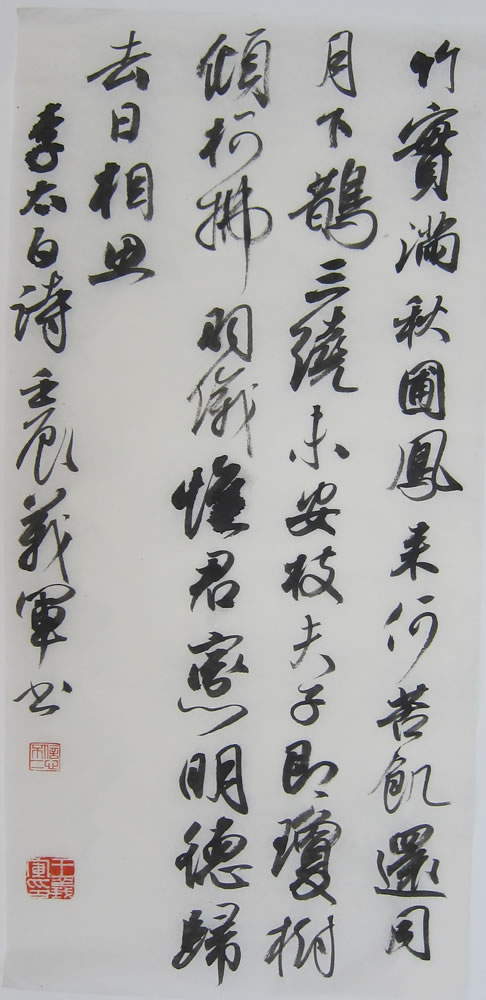 竹實滿秋圃鳳来何苦飢還同
月下鵲三繞未安枝夫子即瓊樹
傾柯拂羽儀懷君戀明德歸
去日相思
李太白詩壬辰義軍书